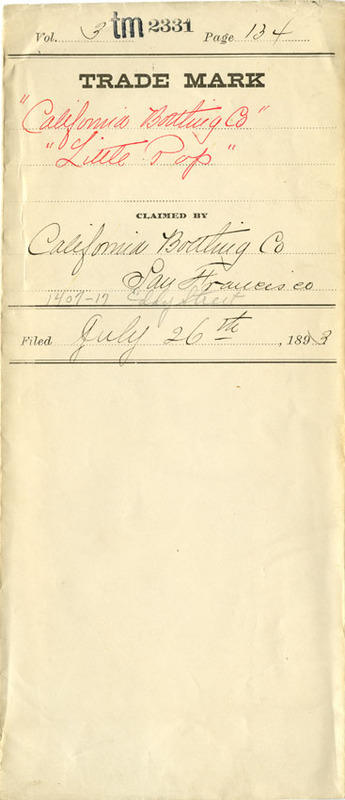 Vol. 3 tm 2331 Page 134
TRADE MARK
"California Bottling Co"
"Little Pop"
CLAIMED BY
California Bottling Co
San Francisco
1407-17 Eddy Street
Filed July 26th, 1893